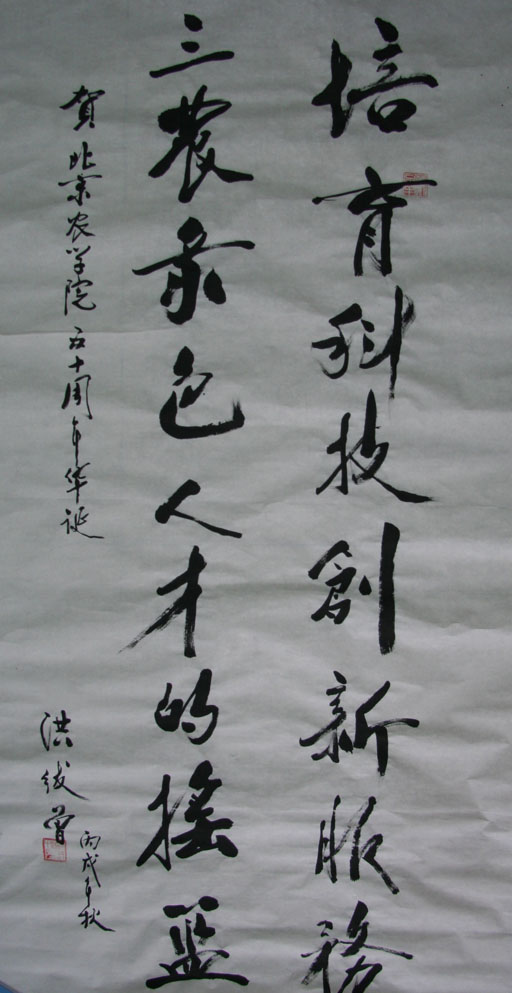 培育科技創新服務
三农亲色人才的摇篮
贺北京农学院五十周年华诞
洪绂曾
丙戌年秋